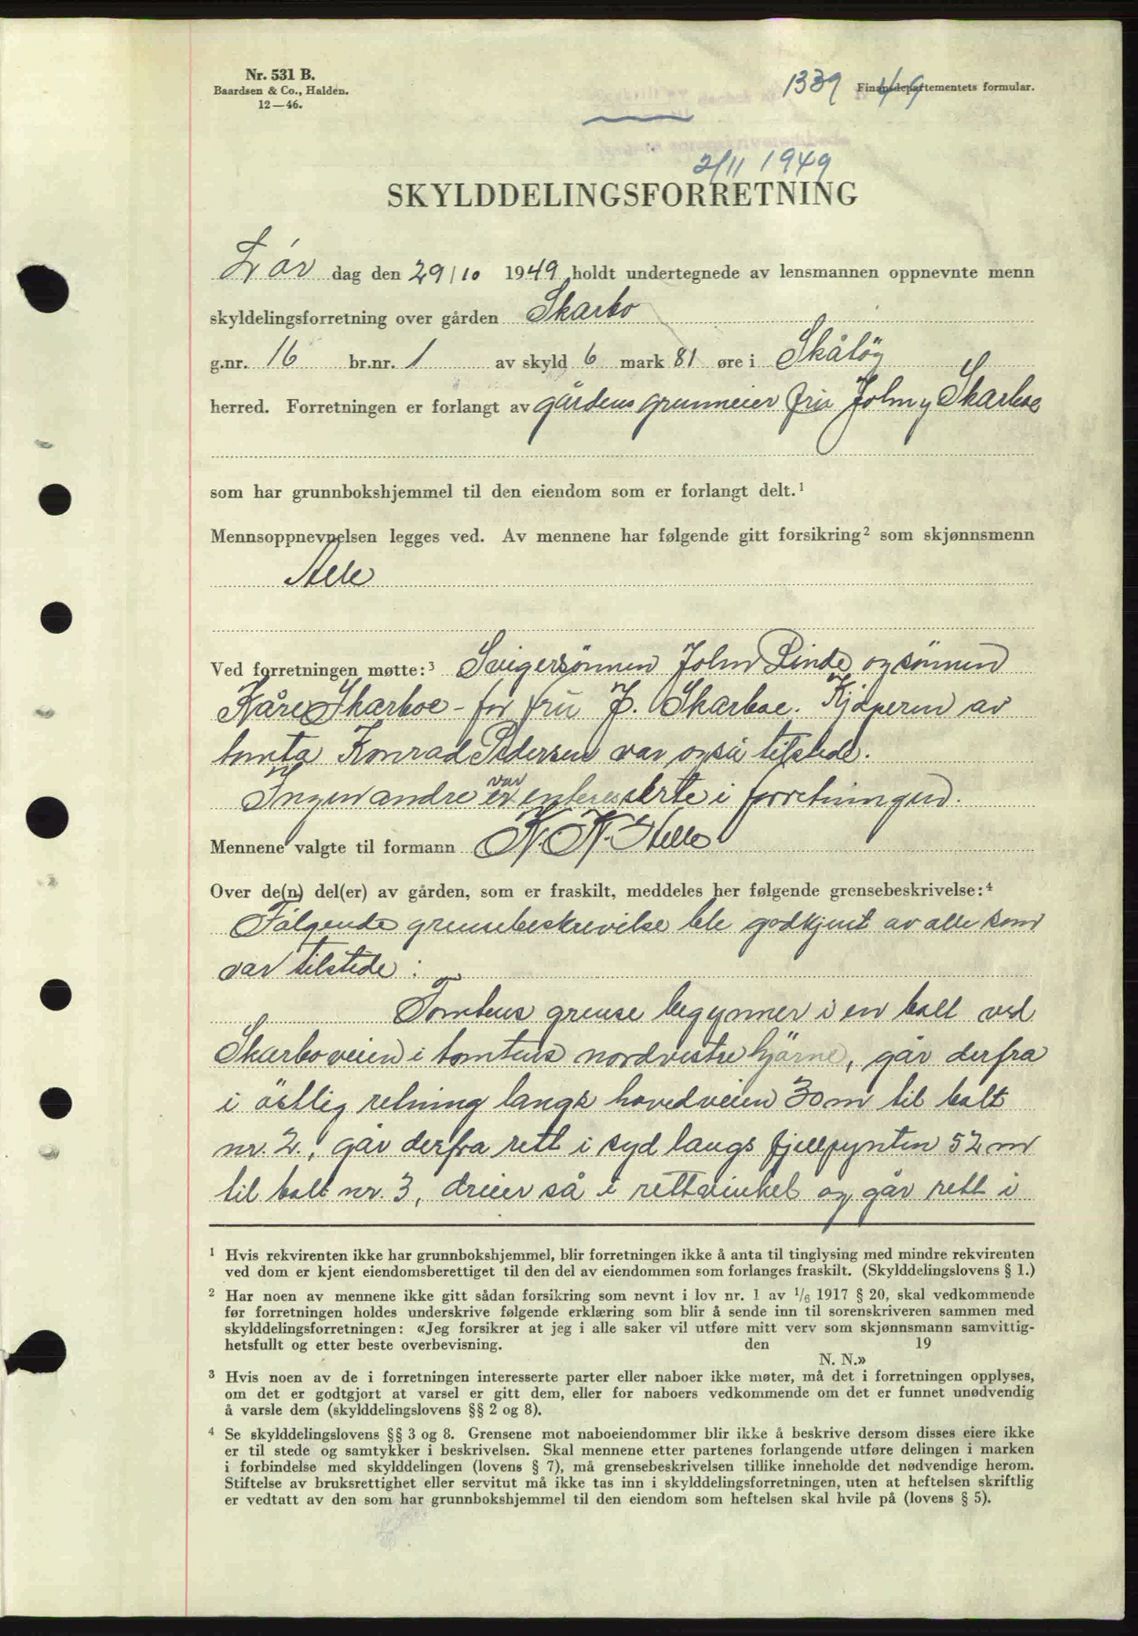 Nr. 531 B.
Baardsen & Co., Halden.
12—46.
1339 49
Finansdepartementets formular.
2/11 1949
SKYLDDELINGSFORRETNING
Lør dag den 29/10 1949 holdt undertegnede av lensmannen oppnevnte menn
skyldelingsforretning over gården Skarbo
g.nr. 16 br.nr. 1 av skyld 6 mark 81 øre i Skåløy
herred. Forretningen er forlangt av gårdens grunneier fru Johny Skarboe
som har grunnbokshjemmel til den eiendom som er forlangt delt.¹
Mennsoppnevnelsen legges ved. Av mennene har følgende gitt forsikring² som skjønnsmenn
Alle
Ved forretningen møtte:³ Svigersønnen John Rinde og sønnen
Kåre Skarboe - for fru J. Skarboe. Kjøperen av
tomta Konrad Pedersen var også tilstede.
Ingen andre er var enteresserte i forretningen.
Mennene valgte til formann K. K. Helle
Over de(n) del(er) av gården, som er fraskilt, meddeles her følgende grensebeskrivelse:⁴
Følgende grensebeskrivelse ble godkjent av alle som
var tilstede:
Tomtens grense begynner i en bolt ved
Skarboveien i tomtens nordvestre hjørne, går derfra
i østlig retning langs hovedveien 30 m til bolt
nr. 2., går derfra rett i syd langs fjellpynten 52 m
til bolt nr. 3, dreier så i rettvinkel og går rett i
¹ Hvis rekvirenten ikke har grunnbokshjemmel, blir forretningen ikke å anta til tinglysing med mindre rekvirenten
ved dom er kjent eiendomsberettiget til den del av eiendommen som forlanges fraskilt. (Skylddelingslovens § 1.)
² Har noen av mennene ikke gitt sådan forsikring som nevnt i lov nr. 1 av 1/6 1917 § 20, skal vedkommende
før forretningen holdes underskrive følgende erklæring som blir å sende inn til sorenskriveren sammen med
skylddelingsforretningen: «Jeg forsikrer at jeg i alle saker vil utføre mitt verv som skjønnsmann samvittig-
hetsfullt og etter beste overbevisning. den 19
N. N.»
³ Hvis noen av de i forretningen interesserte parter eller naboer ikke møter, må det i forretningen opplyses,
om det er godtgjort at varsel er gitt dem, eller for naboers vedkommende om det er funnet unødvendig
å varsle dem (skylddelingslovens §§ 2 og 8).
⁴ Se skylddelingslovens §§ 3 og 8. Grensene mot naboeiendommer blir ikke å beskrive dersom disses eiere ikke
er til stede og samtykker i beskrivelsen. Skal mennene etter partenes forlangende utføre delingen i marken
i forbindelse med skylddelingen (lovens § 7), må grensebeskrivelsen tillike inneholde det nødvendige herom.
Stiftelse av bruksrettighet eller servitut må ikke tas inn i skylddelingsforretningen, uten at heftelsen skriftlig
er vedtatt av den som har grunnbokshjemmel til den eiendom som heftelsen skal hvile på (lovens § 5).